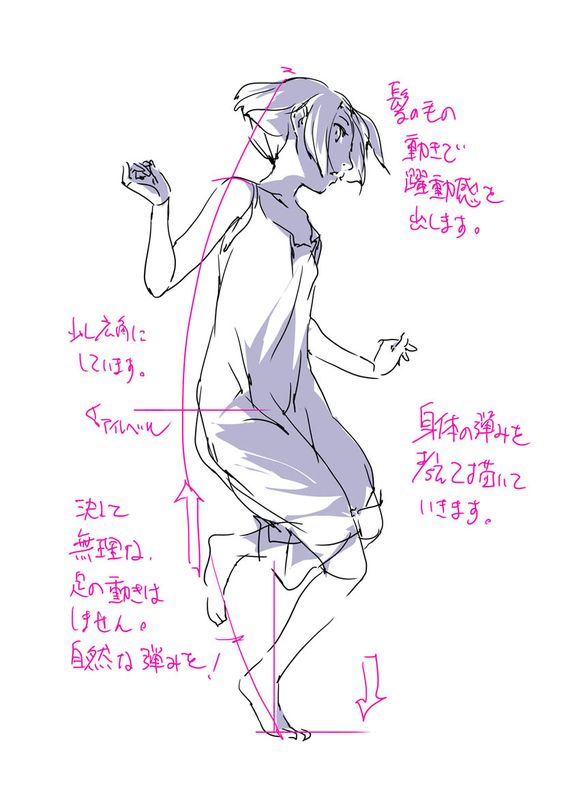 髪の毛の
動きで
躍動感を
出します。
少し広角に
しています。
アイレベル
身体の弾みを
考えて描いて
いきます。
決して
無理な、
足の動きは
しません。
自然な弾みを!